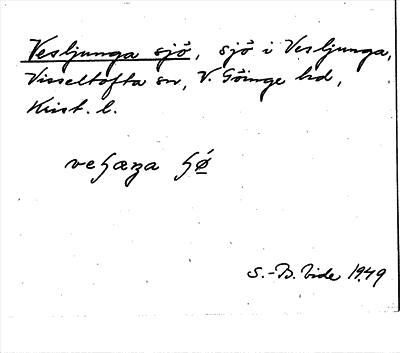 Vesljunga sjö, sjö i Vesljunga,
Visseltofta sn, V. Göinge hd,
Krist. l.
S.-B. Vide 1949